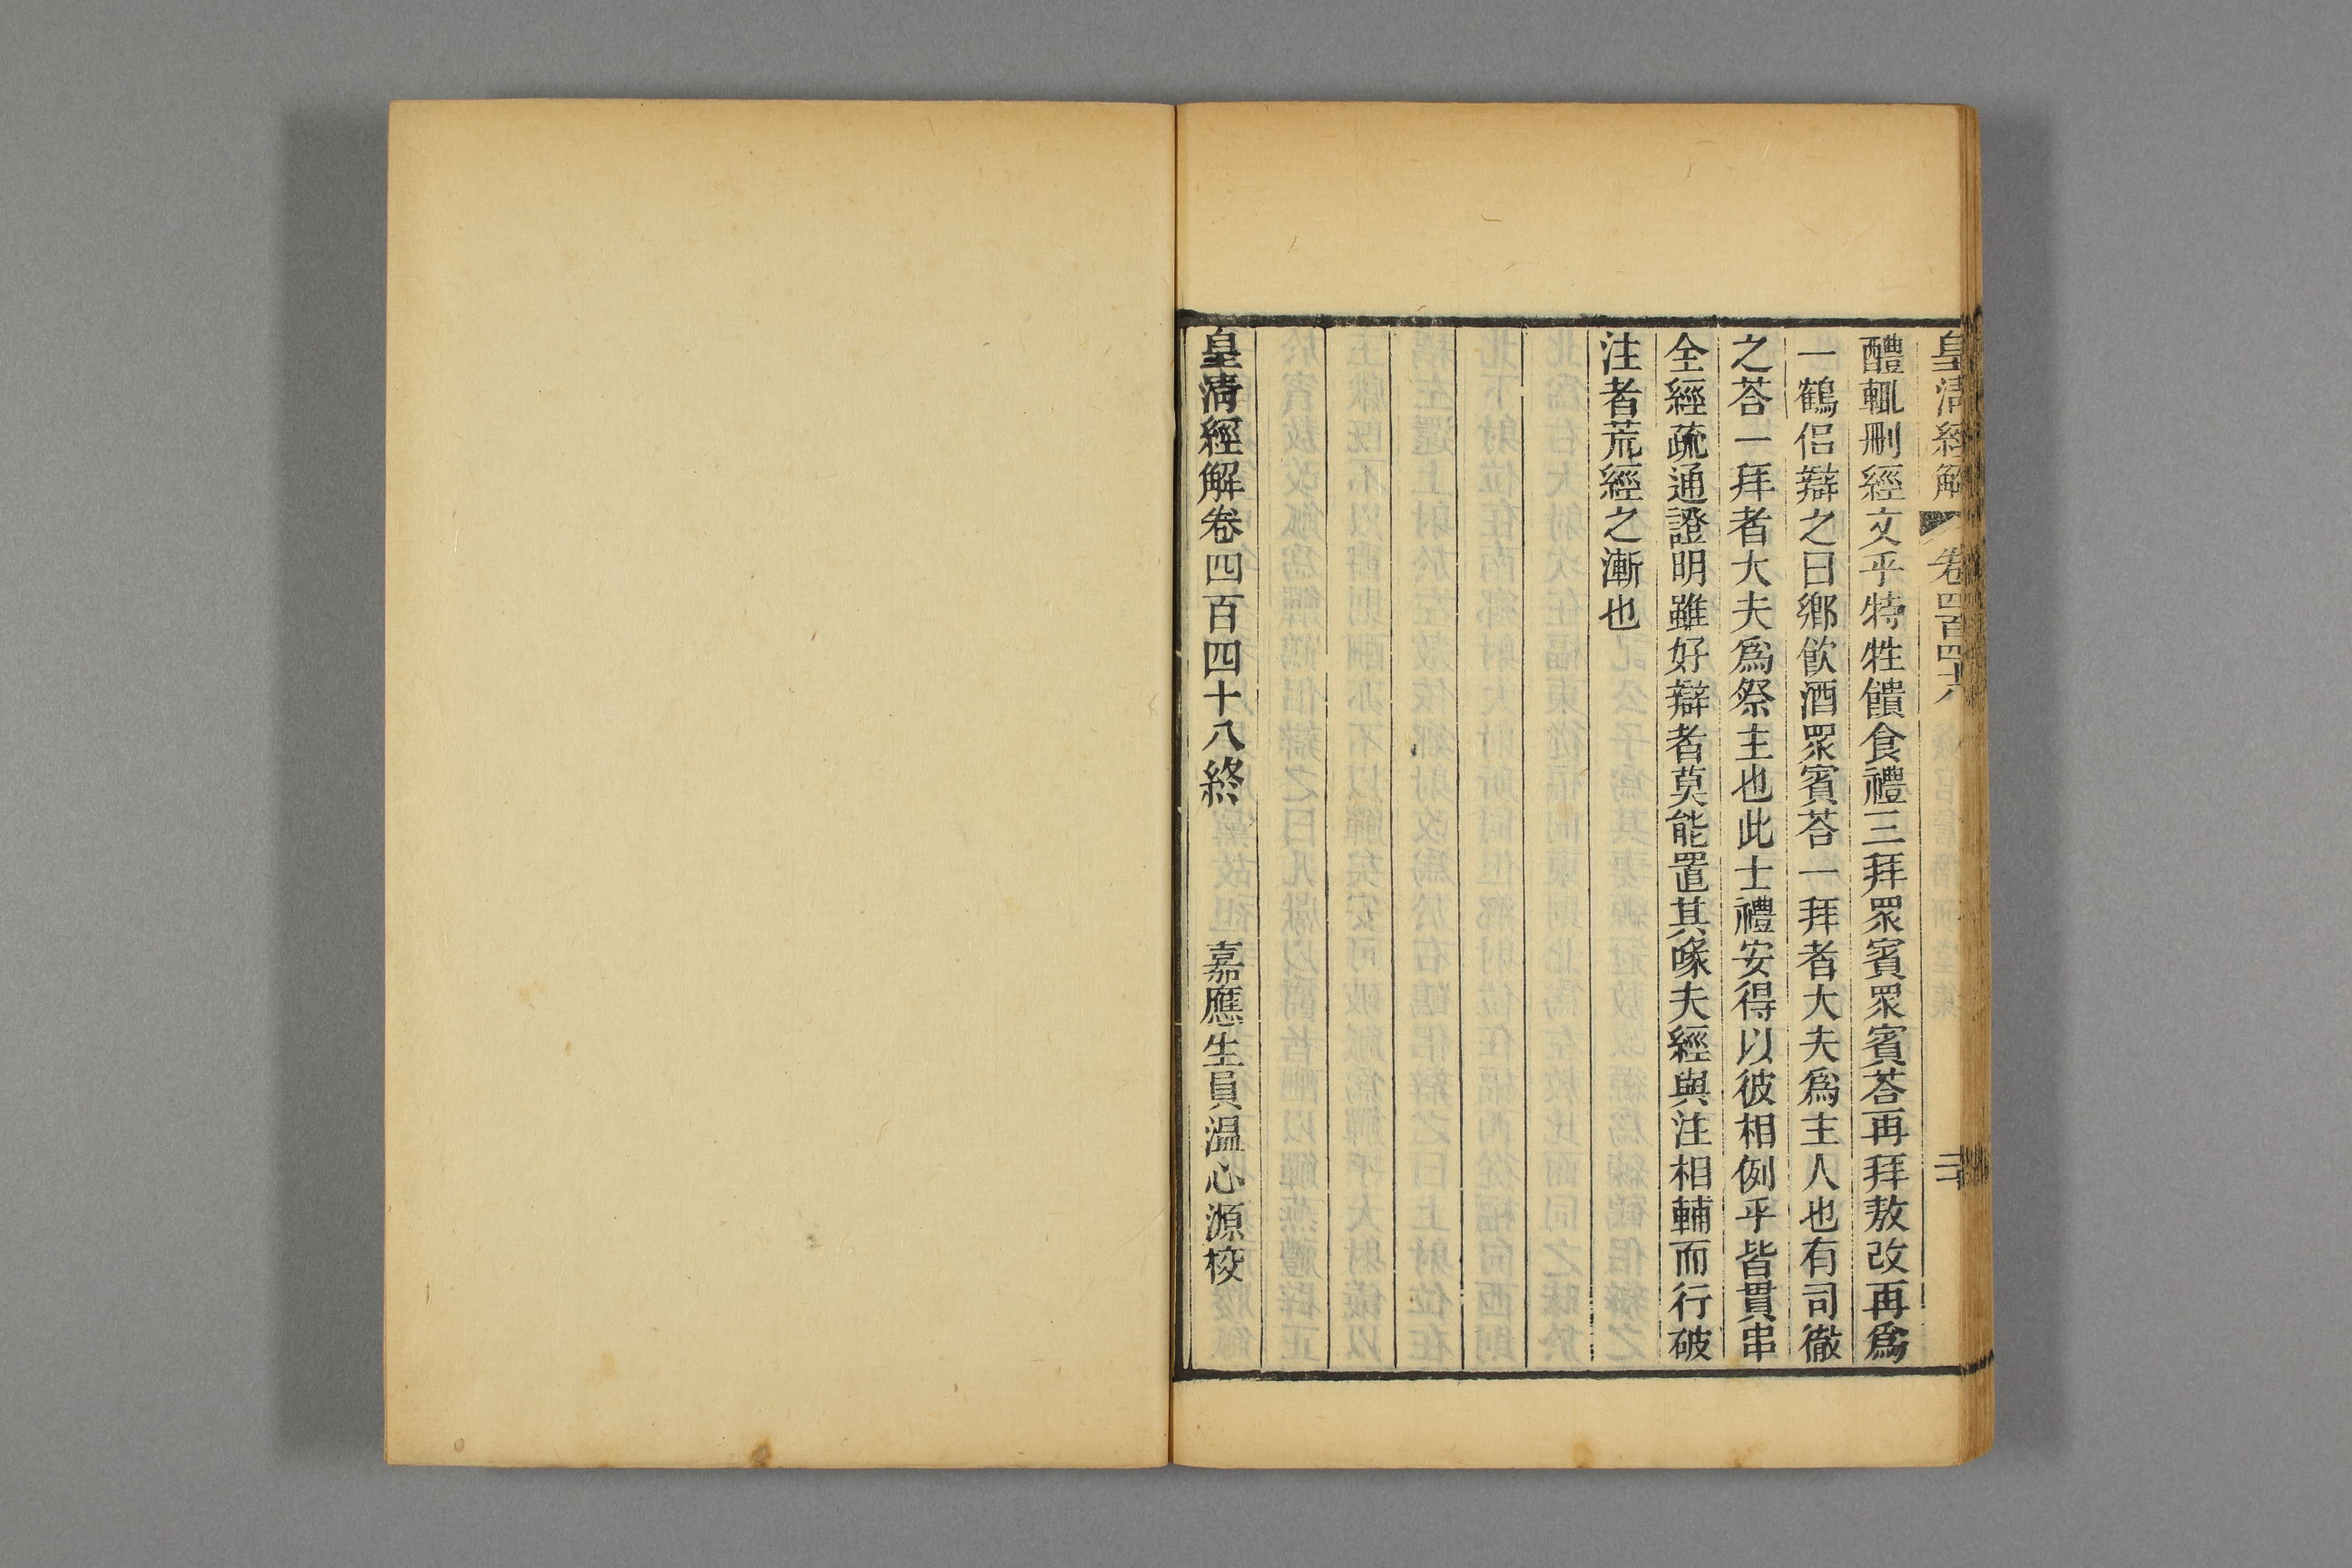 皇清經解 卷四百四十八
醴輒刪經文乎特牲饋食禮三拜眾賓眾賓荅再拜敖改再爲
一鶴侶辯之曰鄉飮酒眾賓荅一拜者大夫爲主人也有司徹
之荅一拜者大夫爲祭主也此士禮安得以彼相例乎皆貫串
全經疏通證明雖好辯者莫能置其喙夫經與注相輔而行破
注者荒經之漸也
皇清經解卷四百四十八終 嘉應生員温心源校